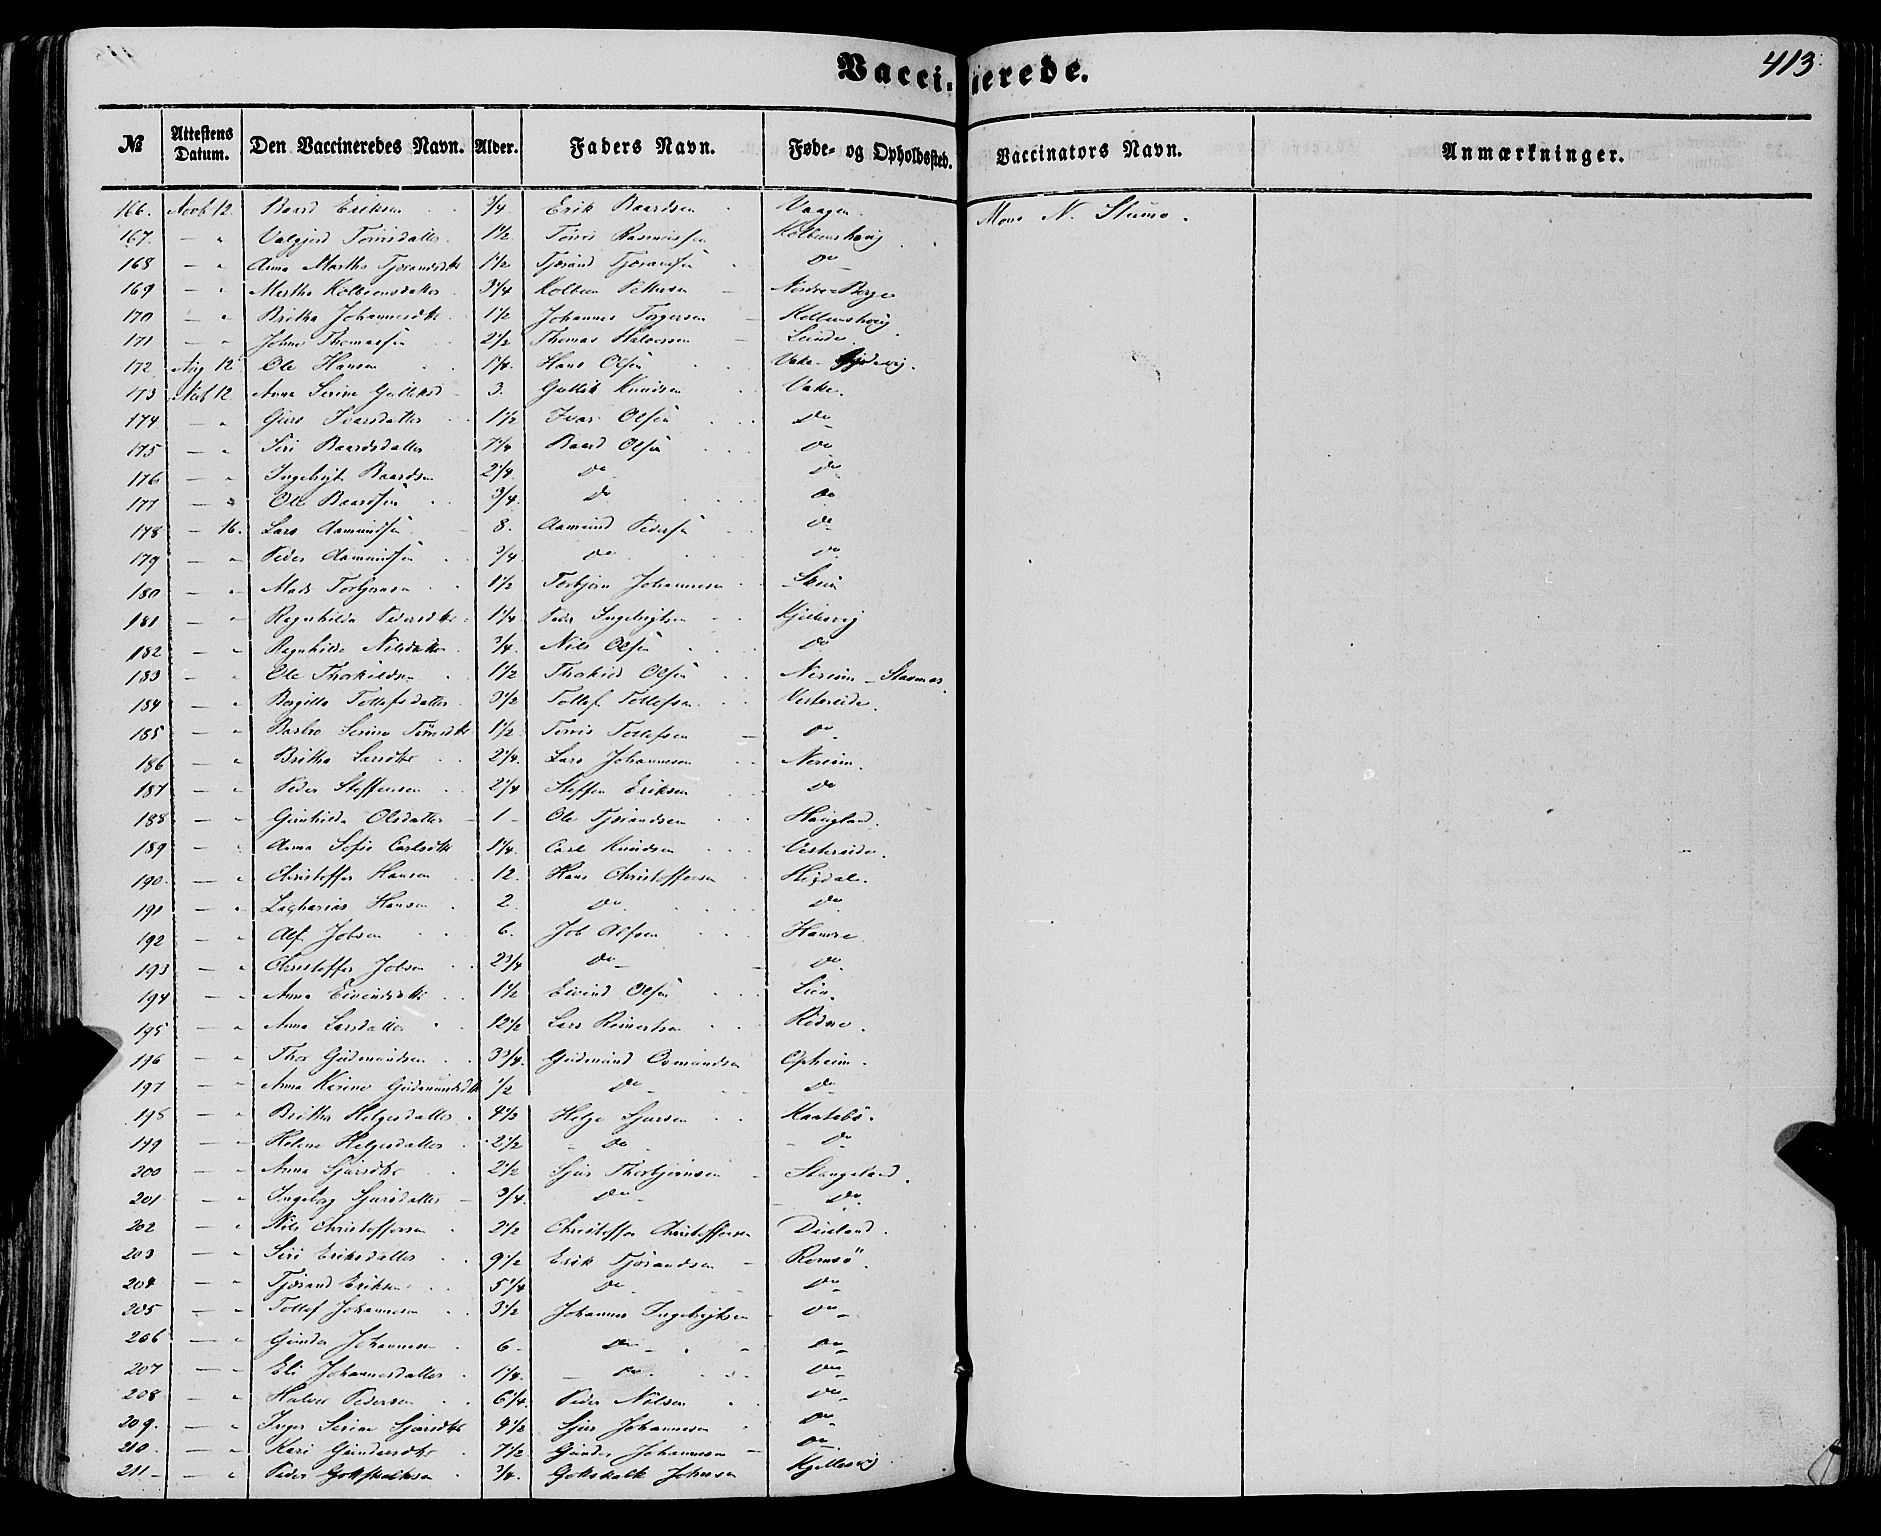 Vaccinerede.
413
№ Attestens Datum. Den Vaccineredes Navn. Alder. Faders Navn. Føde- og Opholdssted. Vaccinators Navn. Anmærkninger.
166. Novb 12 Baard Eriksen 3/4 Erik Baardsen Vaagen. Mons N. Stumo.
167. — " Valgjerd Torrisdatter 1 1/2 Torris Rasmussen Kolbenshavig
168 — " Anna Martha Tjerandsdtr 1 1/2 Tjerand Tjerandsen Do
169 — " Martha Kolbensdatter 3 1/4 Kolben Pettersen Nordre Borge
170 — " Britha Johannesdtr 1 1/2 Johannes Torgersen Kolbenshavig
171 — " Johne Thomassen 2 1/2 Thomas Halvorsen Lunde
172 Aug 12 Ole Hansen 1 1/4 Hans Olsen Vake
173 Novb 12 Anna Serine Gulliksd 3. Gullik Knudsen Vake.
174 — " Guro Ivarsdatter 1 1/2 Ivar Olsen Do
175 — " Siri Baardsdatter 7 1/4 Baard Olsen Do
176 — " Ingebrigt Baardsen 2 1/4 Do Do
177 — " Ole Baardsen 3/4 Do Do
178 — 16. Lars Aamundsen 8. Aamund Pedersen Do
179 — " Peder Aamundsen 3/4 Do Do
180 — " Mads Torbjørnsen 1 1/2 Torbjørn Johannesen
181 — " Ragnhilda Pedersdtr 1 1/4 Peder Ingebrigtsen Kjillesvig
182 — " Ragnhilde Nilsdatter 3/4 Nils Olsen Do
183 — " Ole Thorkildsen 1 1/2 Thorkild Olsen Nerium
184 — " Borgilla Tollefsdatter 3 1/2 Tollef Tollefsen Vestereide.
185 — " Barbro Serine Torrisdtr 1 1/2 Torris Tollefsen Do
186 — " Britha Larsdtr 2 1/4 Lars Johannesen Nerium.
187 — " Peder Steffensen 2 1/4 Steffen Eriksen Do
188 — " Gunhilda Olsdatter 1 Ole Tjerandsen Haugland.
189 — " Anna Sofie Carlsdtr 1 1/4 Carl Knudsen Vestereide.
190. — " Christoffer Hansen 12. Hans Christoffersen Higdal.
191 — " Zacharias Hansen 2 Do Do
192 — " Alf Jobsen 6. Job Alfsen Hamre
193 — " Christoffer Jobsen 2 3/4 Do Do
194 — " Anna Eivindsdtr 1 1/2 Eivind Olsen Lien.
195 — " Anna Larsdatter 12 1/2 Lars Reinertsen Rødne.
196 — " Thor Gudmundsen 3 3/4 Gudmund Osmundsen Opheim.
197 — " Anna Karine Gudmundsdtr 1/2 Do Do
198 — " Britha Helgesdatter 4 1/2 Helge Sjursen Kaatabø.
199 — " Helene Helgesdatter 2 1/2 Do Do
200 — " Anna Sjursdtr 2 1/2 Sjur Thorbjørnsen Stangeland.
201 — " Ingeborg Sjursdatter 3/4 Do Do
202 — " Nils Christoffersen 2 1/2 Christoffer Christoffersen Dueland.
203 — " Siri Eriksdatter 9 1/2 Erik Tjerandsen Romsø
204 — " Tjerand Eriksen 5 1/4 Do Do
205 — " Tollef Johannesen 3 1/2 Johannes Ingebrigtsen Do
206 — " Gunder Johannesen 6 Do Do
207 — " Eli Johannesdatter 1 1/4 Do Do
208 — " Halvor Pedersen 6 1/4 Peder Nilsen Do
209. — " Inger Serine Sjursdtr 4 1/2 Sjur Johannesen Do
210 — " Kari Gundersdtr 7 1/2 Gunder Johannesen Do
211 — " Peder Gotskalksen 3/4 Gotskalk Johnsen Kjillesvig